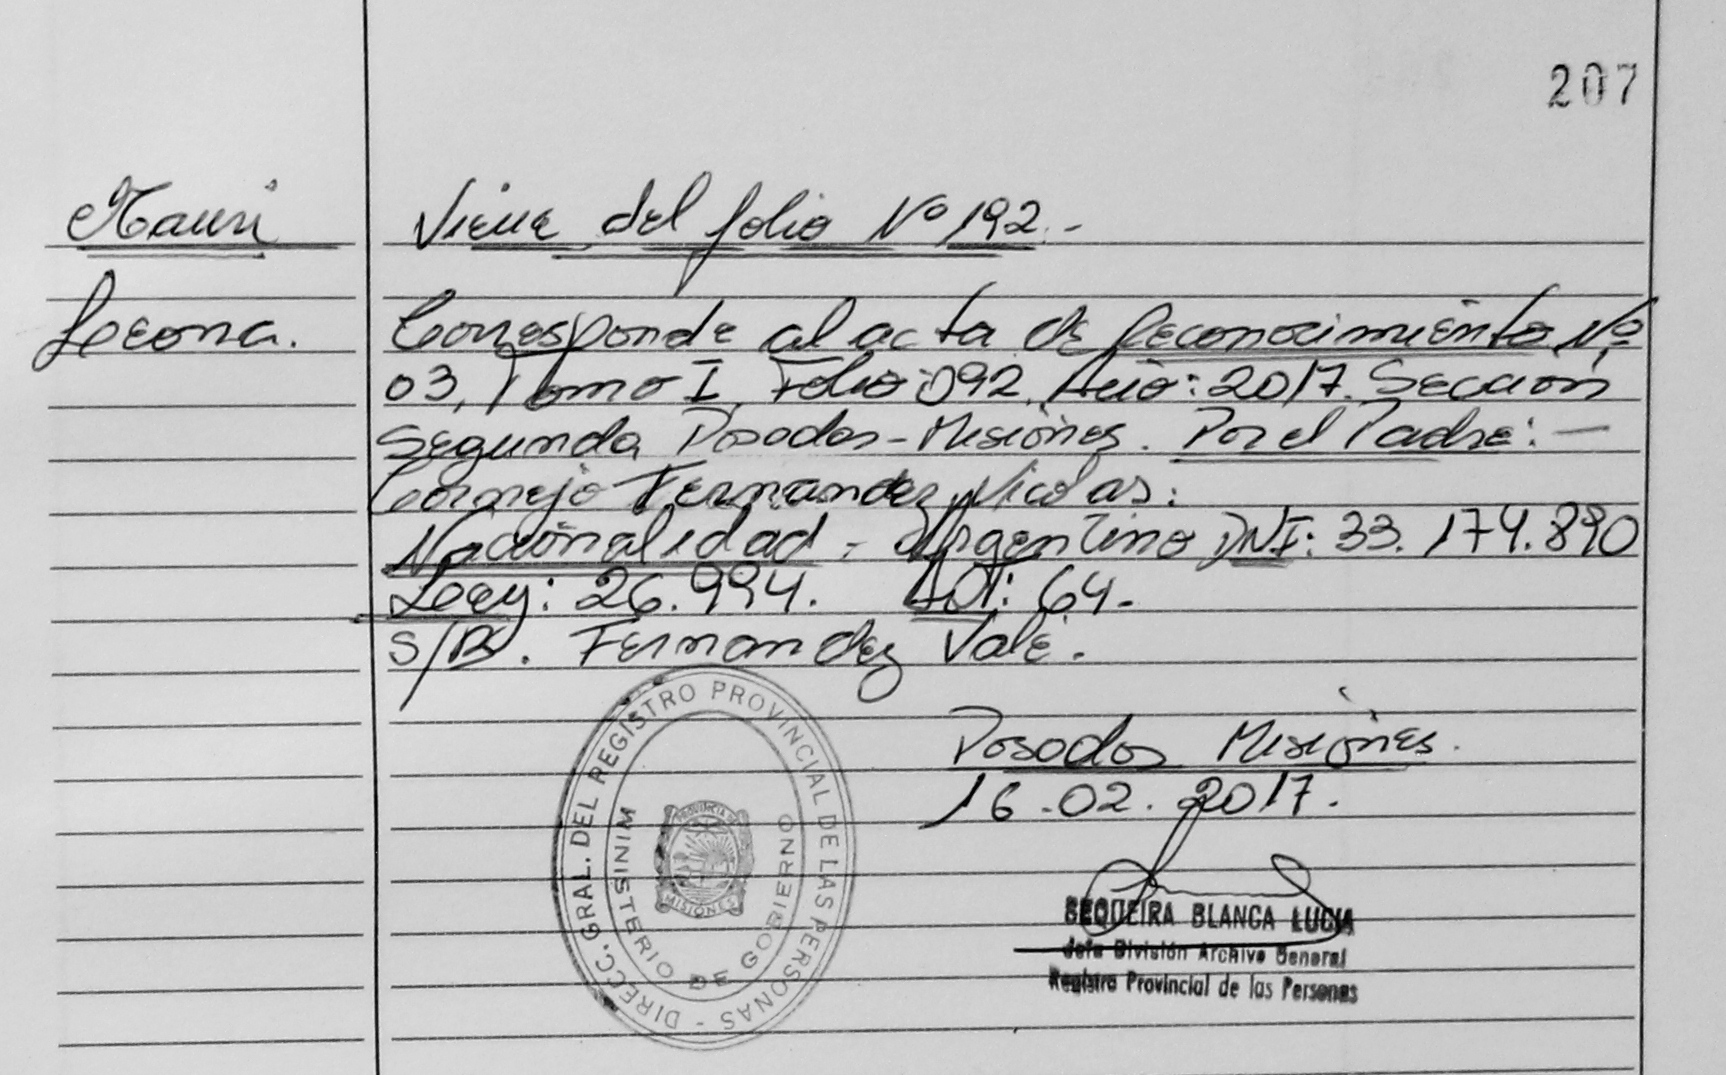 207
Mauri
Lecona.
Viene del folio Nº 192.-
Corresponde al acta de Reconocimiento Nº
03, Tomo I, Folio: 092, Año: 2017. Sección
Segunda Posadas-Misiones. Por el Padre: —
Cornejo Fernandez, Nicolas:
Nacionalidad - Argentino DNI: 33.174.890
Leey: 26.994. Art: 64-
S/B. Fernandez Vale.
Posadas Misiones.
16-02.2017.
DIRECC. GRAL. DEL REGISTRO PROVINCIAL DE LAS PERSONAS -
MINISTERIO DE GOBIERNO
PROVINCIA DE
MISIONES
SEQUEIRA BLANCA LUCIA
Jefa División Archivo General
Registro Provincial de las Personas